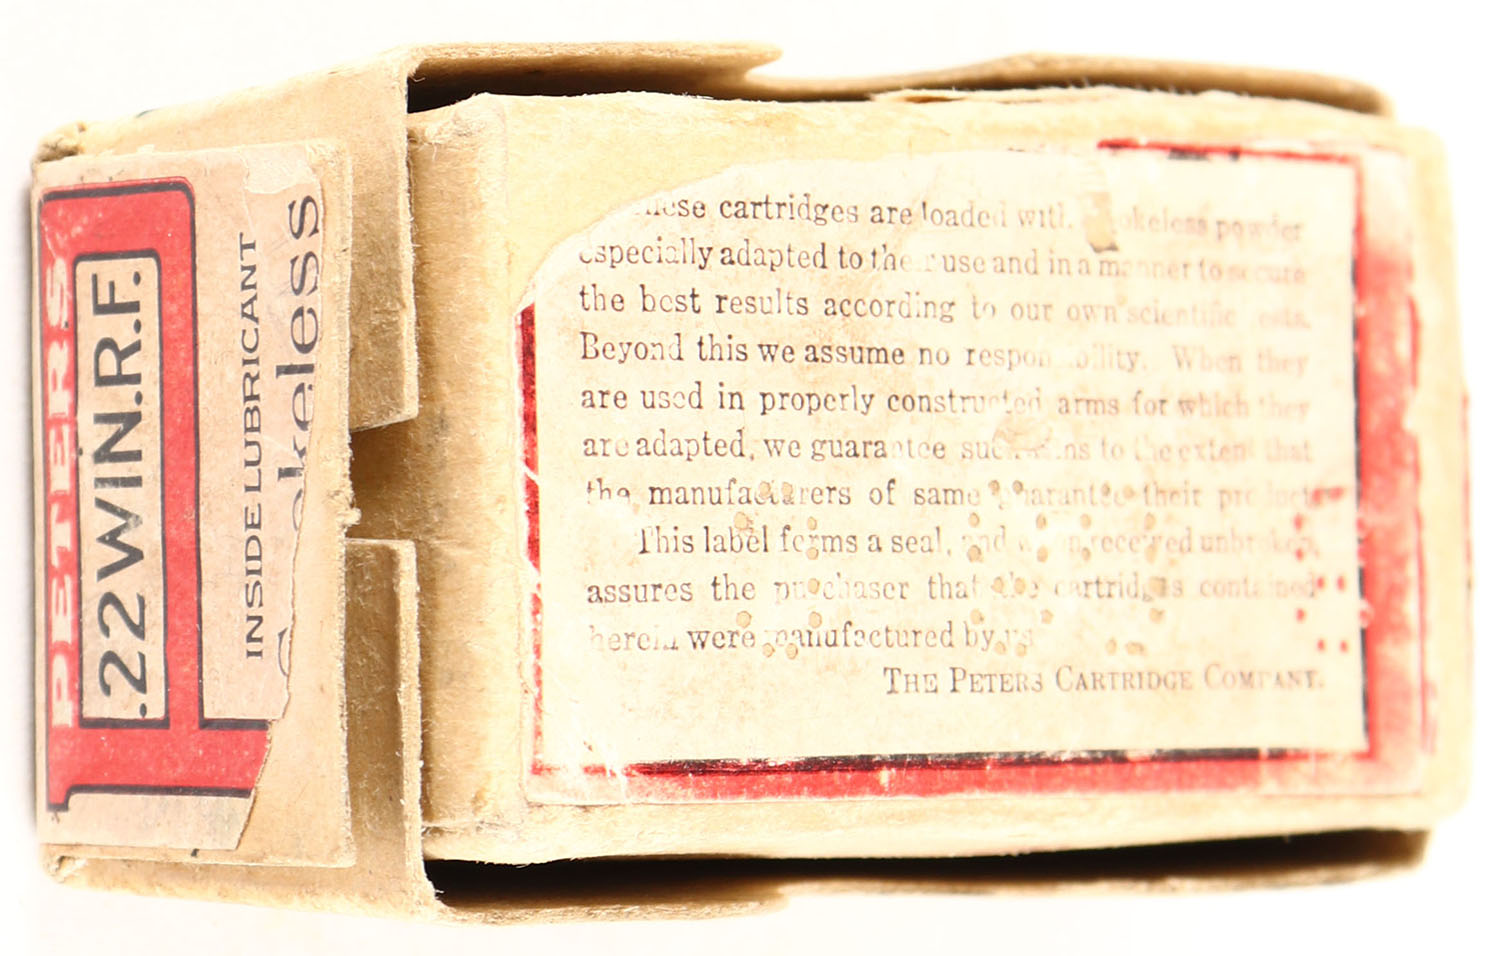 PETERS
.22 WIN.R.F.
INSIDE LUBRICANT
Smokeless
These cartridges are loaded with smokeless powder
especially adapted to their use and in a manner to secure
the best results according to our own scientific tests.
Beyond this we assume no responsibility. When they
are used in properly constructed arms for which they
are adapted, we guarantee such to the extent that
the manufacturers of same guarantee their products
This label forms a seal, and when received unbroken,
assures the purchaser that the cartridges contained
herein were manufactured by us
THE PETERS CARTRIDGE COMPANY.